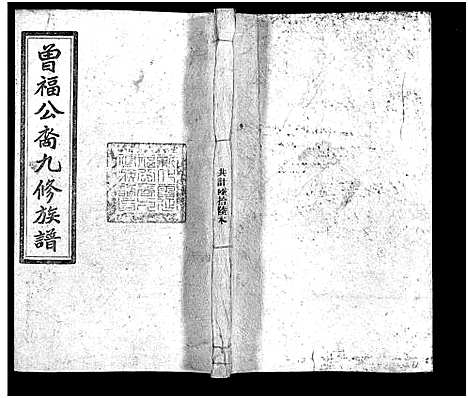 曾福公裔九修族譜
共計肆拾陸本